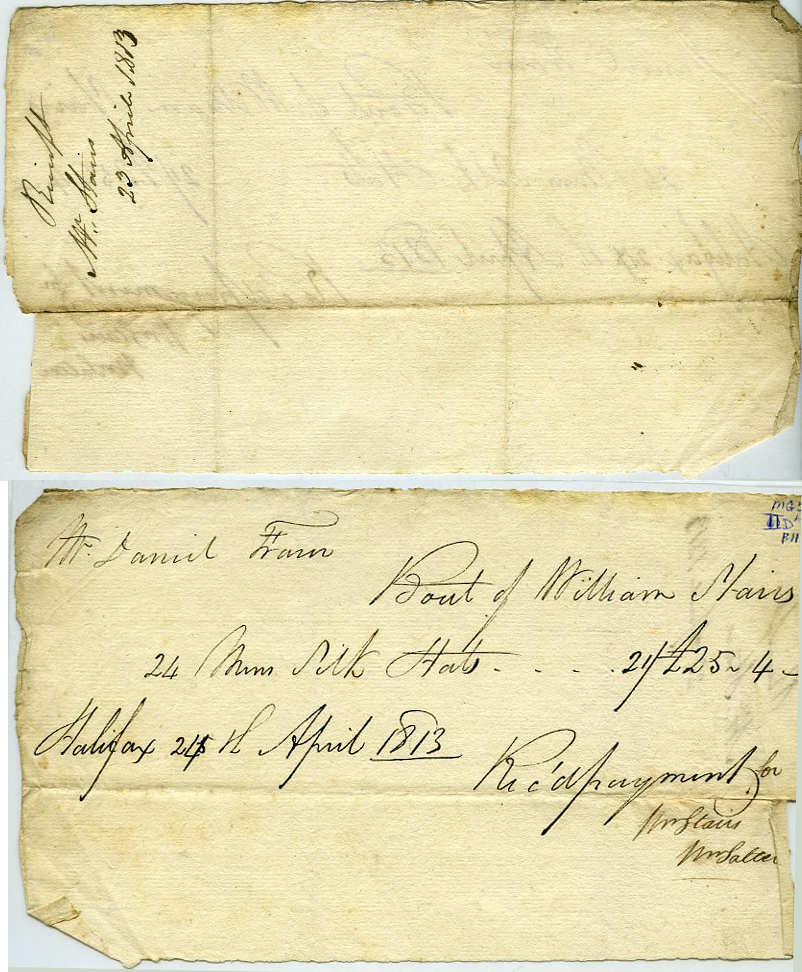 Receipt
Mr. Stairs
23 April 1813
Mr. Daniel Fraser
Bout of William Stairs
24 Mens Silk Hats - . . . . 21/ £25 - 4 -
Halifax 24th April 1813
Rec'd payment for
Wm Stairs
Wm Salter
MG3